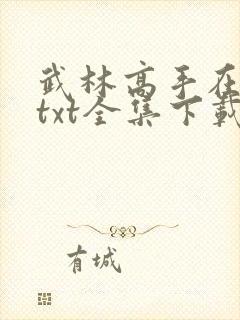 武林高手在
txt全集下载
有城